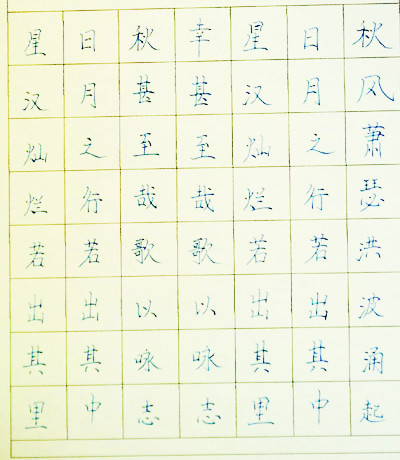 秋风萧瑟洪波涌起
日月之行若出其中
星汉灿烂若出其里
幸甚至哉歌以咏志
秋甚至哉歌以咏志
日月之行若出其中
星汉灿烂若出其里